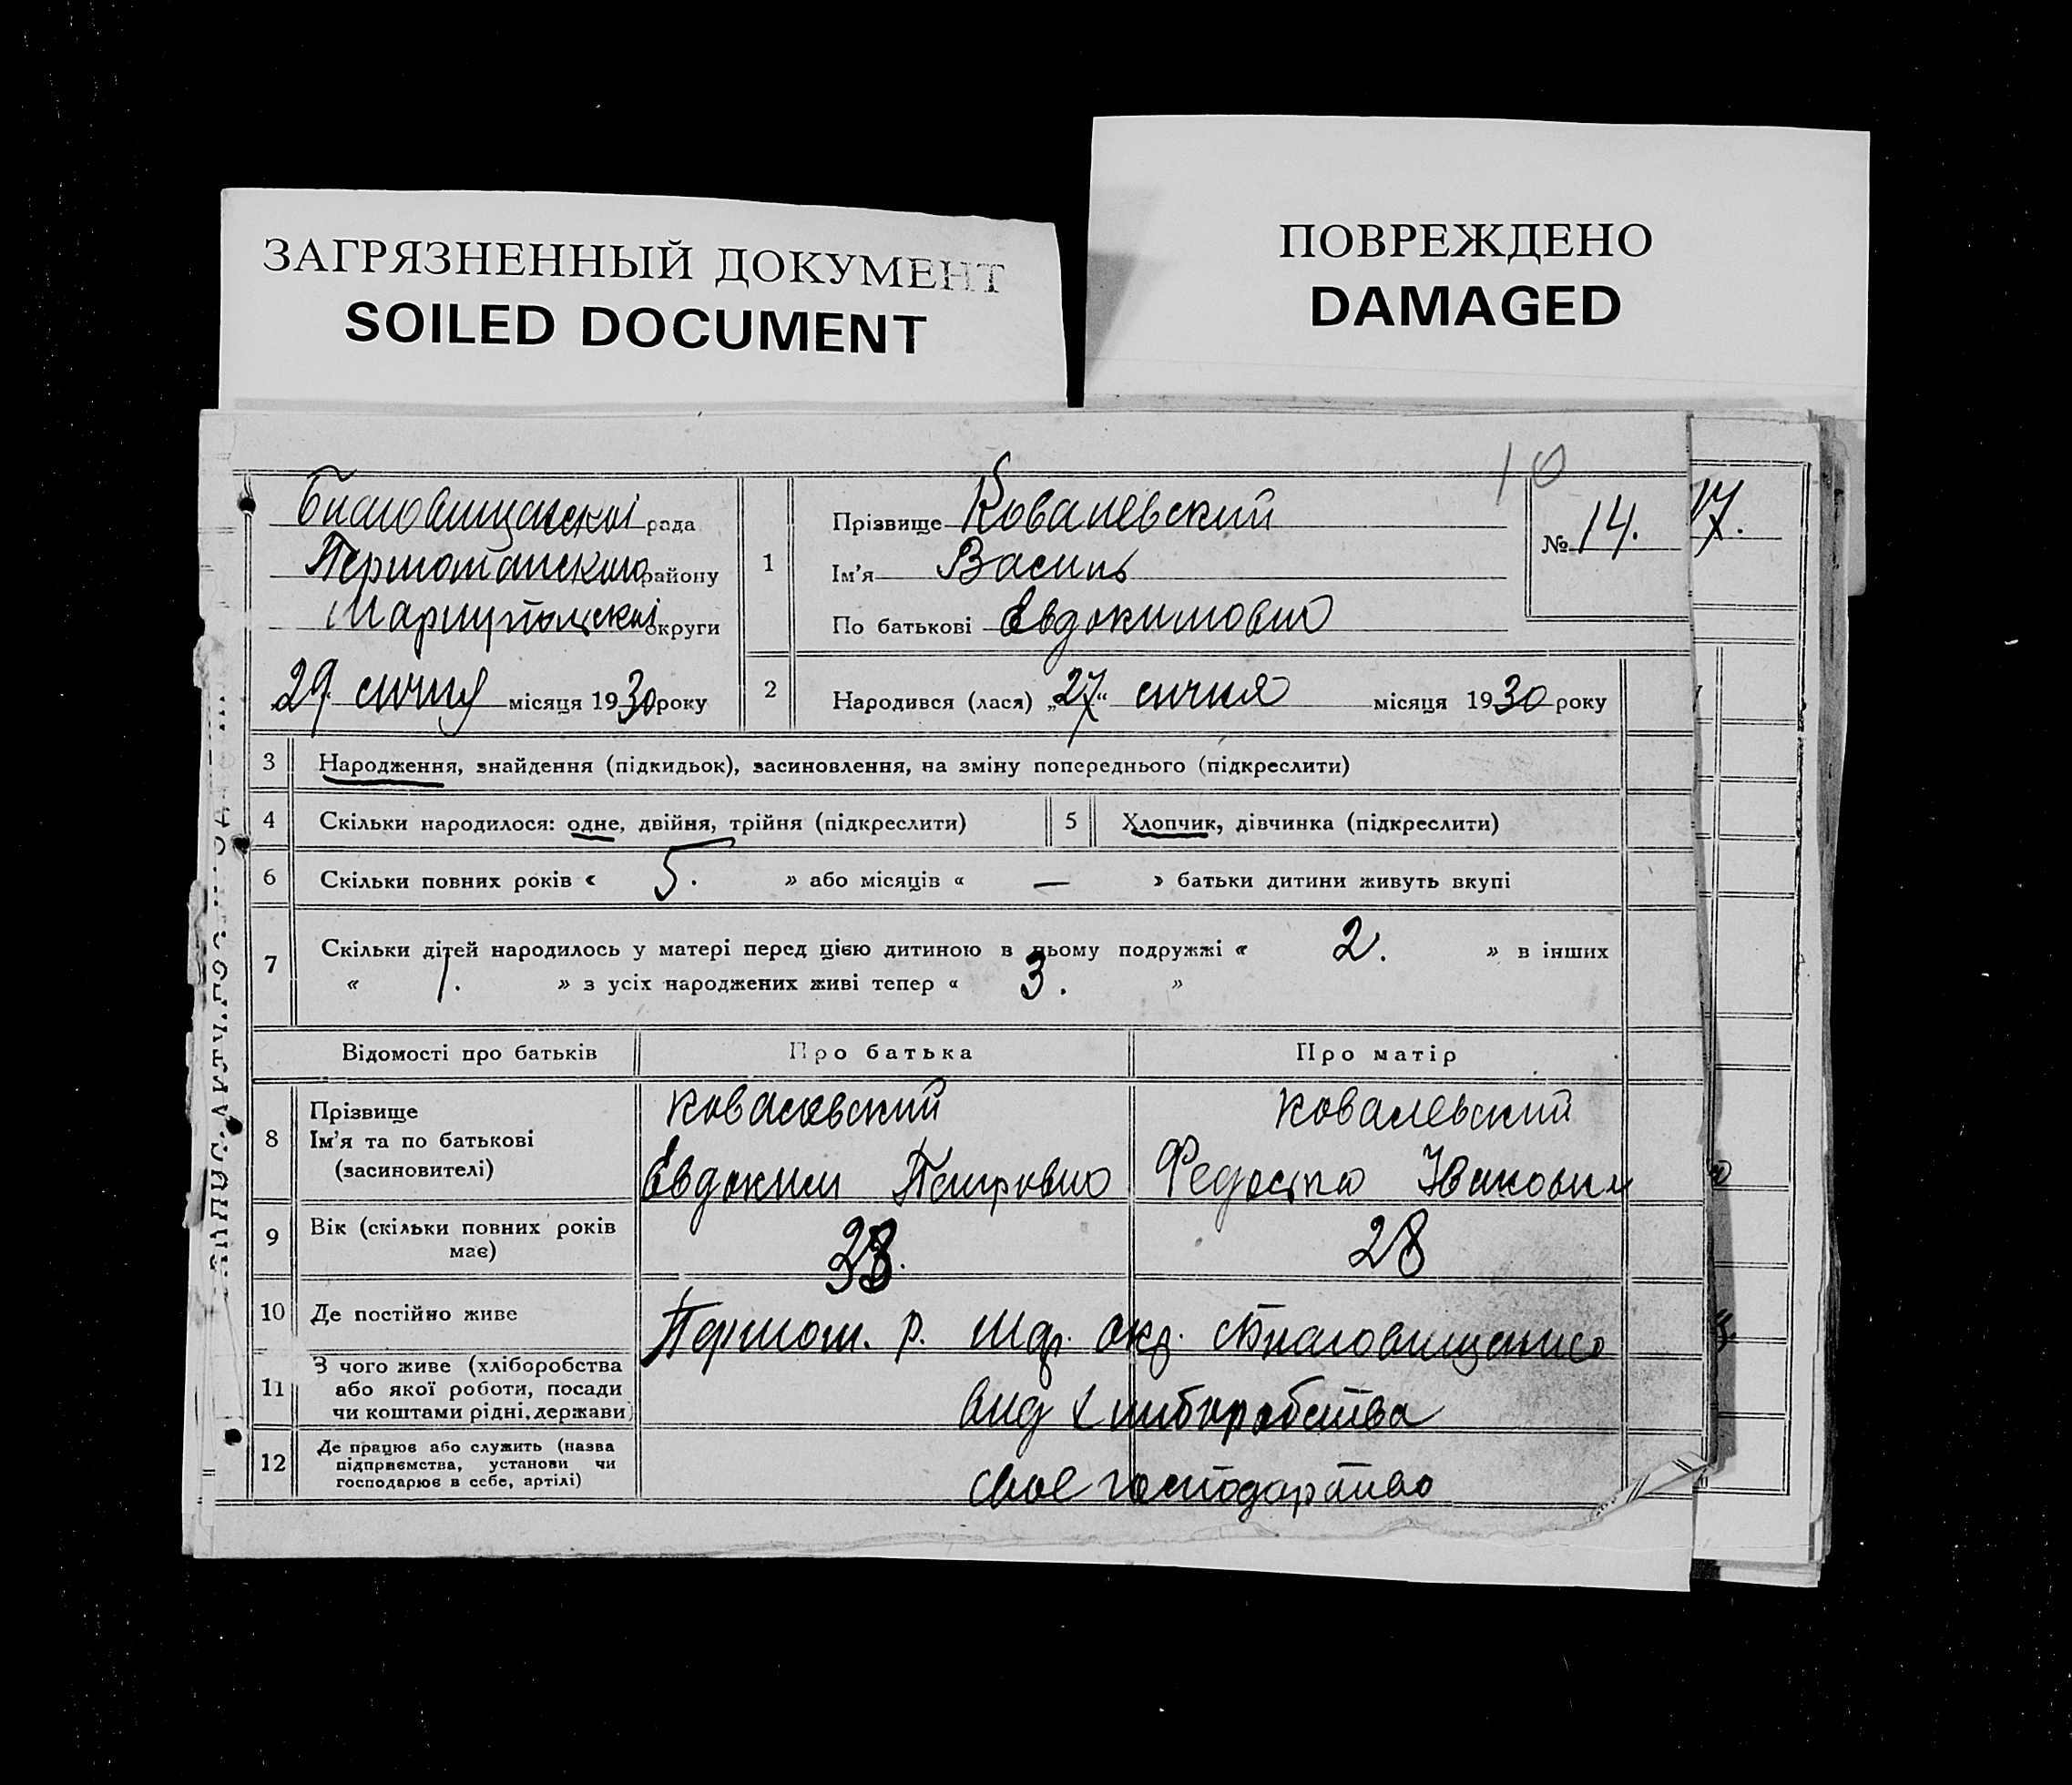 ЗАГРЯЗНЕННЫЙ ДОКУМЕНТ
SOILED DOCUMENT
ПОВРЕЖДЕНО
DAMAGED
10
рада
району
Мариупольскої округи
29 січня місяця 1930 року
1
Прізвище Ковалевский
Ім'я Василь
По батькові Евдокимович
№ 14.
17.
2
Народився (лася) „27“ січня місяця 1930 року
3 Народження, знайдення (підкидьок), засиновлення, на зміну попереднього (підкреслити)
4 Скільки народилося: одне, двійня, трійня (підкреслити) 5 Хлопчик, дівчинка (підкреслити)
6 Скільки повних років « 5. » або місяців « — » батьки дитини живуть вкупі
7 Скільки дітей народилось у матері перед цією дитиною в цьому подружжі « 2. » в інших
« 1. » з усіх народжених живі тепер « 3. »
Відомості про батьків Про батька Про матір
8 Прізвище
Ім'я та по батькові
(засиновителі)
Ковалевский
Евдоким Петрович
Ковалевский
Федоста Иванович
9 Вік (скільки повних років
має)
28
10 Де постійно живе
р. Мар. окр.
11 З чого живе (хліборобства
або якої роботи, посади
чи коштами рідні, держави)
вид хлиборобства
12 Де працює або служить (назва
підприємства, установи чи
господарює в себе, артілі)
свое господарство